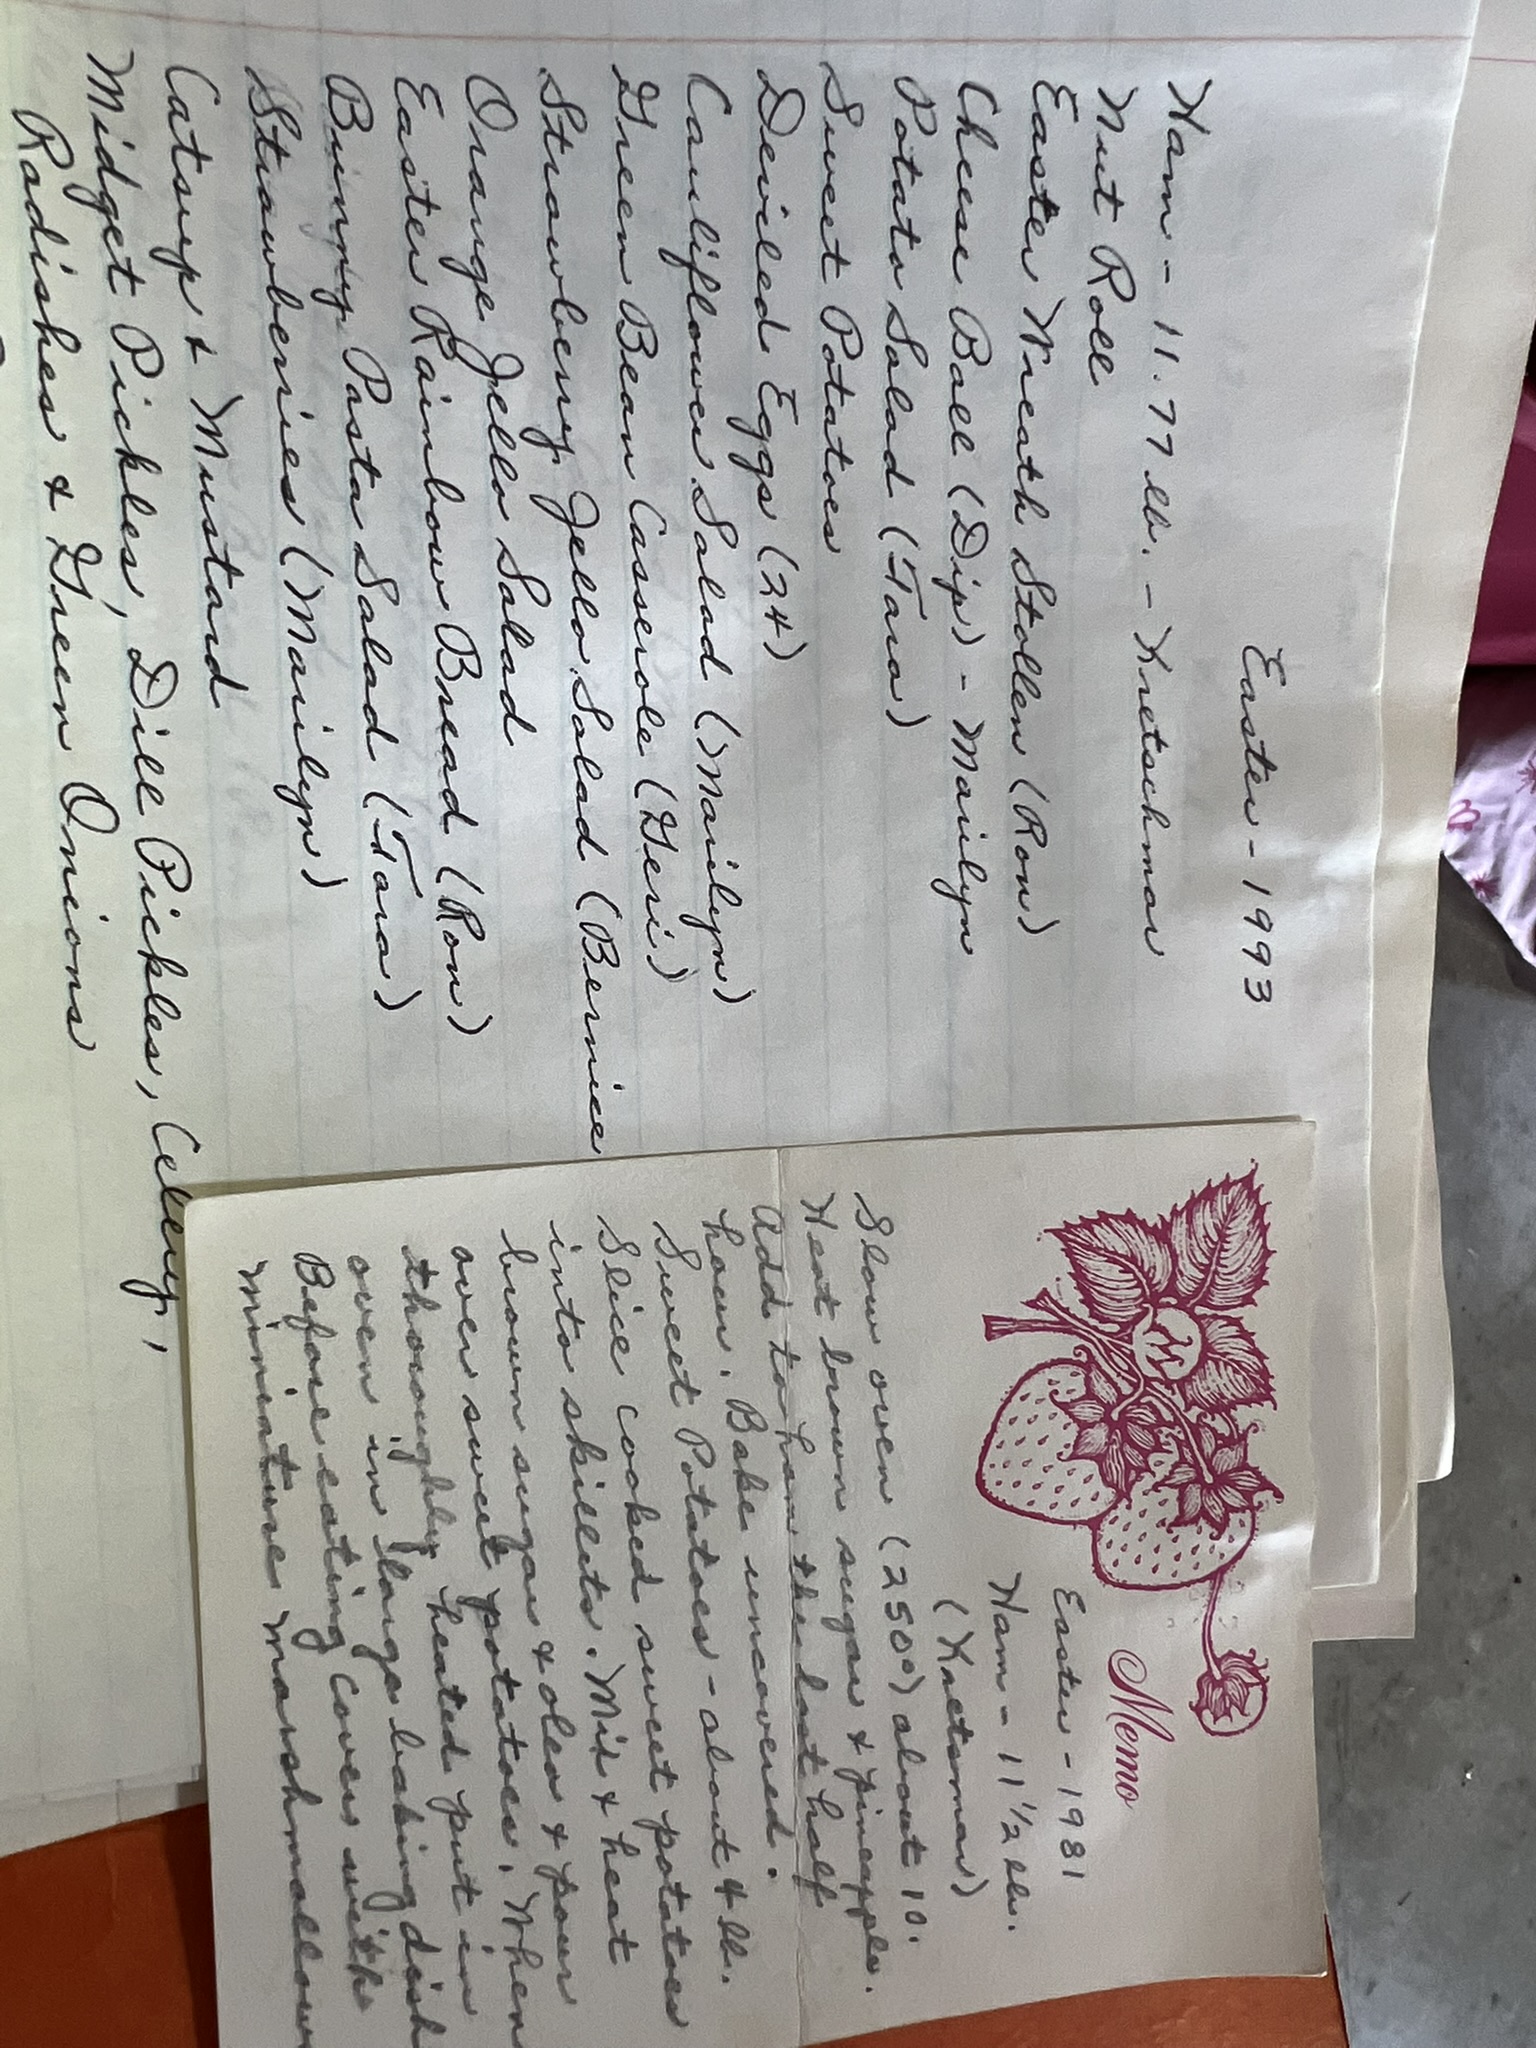 Easter - 1993
Ham - 11.77 lb. - Kretschmar
Nut Roll
Easter Wreath Stollen (Ron)
Cheese Ball (Dip) - Marilyn
Potato Salad (Tara)
Sweet Potatoes
Deviled Eggs (24)
Cauliflower Salad (Marilyn)
Green Bean Casserole (Geri)
Strawberry Jello Salad (Bernice
Orange Jello Salad
Easter Rainbow Bread (Ron)
Binny Pasta Salad (Tara)
Strawberries (Marilyn)
Catsup & Mustard
Midget Pickles, Dill Pickles, Celery,
Radishes & Green Onions
Memo
Easter - 1981
Ham - 11 1/2 lb.
(Kretsmar)
Slow oven (250°) about 10.
Heat brown sugar & pineapple.
Add to ham the last half
hour. Bake uncovered.
Sweet Potatoes - about 4 lb.
Slice cooked sweet potatoes
into skillets. Mix & heat
brown sugar & oleo & pour
over sweet potatoes. When
thoroughly heated put in
oven in large baking dish
Before eating cover with
miniature marshmallow